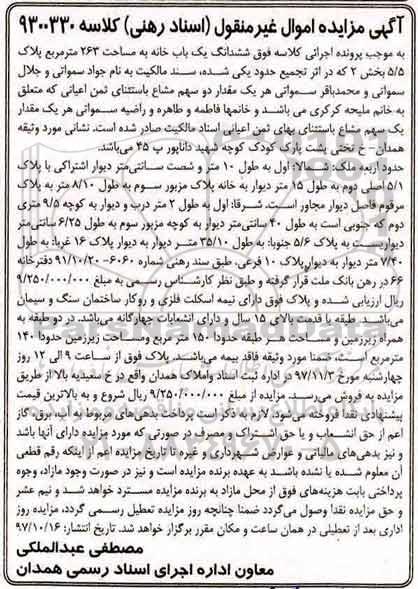 آگهی مزایده اموال غیرمنقول (اسناد رهنی) کلاسه ۹۳۰۰۳۳۰
به موجب پرونده اجرائی کلاسه فوق ششدانگ یک باب خانه به مساحت ۲۶۳ مترمربع پلاک
۵/۵ بخش ۲ که در اثر تجمیع حدود یکی شده، سند مالکیت به نام جواد سمواتی و جلال
سمواتی و محمدباقر سمواتی هر یک مقدار دو سهم مشاع باستثنای ثمن اعیانی که متعلق
به خانم ملیحه کرکری می باشد و خانمها فاطمه و طاهره و راضیه سمواتی هر یک مقدار
یک سهم مشاع باستثنای بهای ثمن اعیانی اسناد مالکیت صادر شده است. نشانی مورد وثیقه
همدان -خ تختی پشت پارک کودک کوچه شهید داناپور پ ۴۵ می‌باشد.
حدود اربعه ملک: شمالا: اول به طول ۱۰ متر و شصت سانتی‌متر دیوار اشتراکی با پلاک
۵/۱ اصلی دوم به طول ۱۵ متر دیوار به خانه پلاک مزبور سوم به طول ۸/۱۰ متر به پلاک
مرقوم فاصل دیوار مجاور است. شرقا: اول به طول ۲ متر درب و دیوار به کوچه ۹/۵ متری
دوم که جنوبی است به طول ۴۰ سانتی‌متر دیوار به کوچه مزبور سوم به طول ۶/۲۵ سانتی‌متر
دیواریست به پلاک ۵/۶ جنوبا: به طول ۳۵/۱۰ متر دیوار به دیوار پلاک ۱۶ غربا: به طول
۷/۴۰ متر دیوار به دیوار پلاک ۱۰ فرعی. طبق سند رهنی شماره ۶۰۶۰- ۹۱/۱۰/۲۰ دفترخانه
۶۶ در رهن بانک ملت قرار گرفته و طبق نظر کارشناس رسمی به مبلغ ۹/۲۵۰/۰۰۰/۰۰۰
ریال ارزیابی شده و پلاک فوق دارای نیمه اسکلت فلزی و روکار ساختمان سنگ و سیمان
می‌باشد. طبقه با قدمت بالای ۱۵ سال و دارای انشعابات چهارگانه می‌باشد. در دو طبقه به
همراه زیرزمین و مساحت هر طبقه حدودا ۱۵۰ متر مربع ومساحت زیرزمین حدودا ۱۴۰
مترمربع است، ضمنا مورد وثیقه فاقد بیمه می‌باشد. پلاک فوق از ساعت ۹ الی ۱۲ روز
چهارشنبه مورخ ۹۷/۱۱/۳ در اداره ثبت اسناد واملاک همدان واقع در خ سعیدیه بالا از طریق
مزایده به فروش می‌رسد. مزایده از مبلغ ۹/۲۵۰/۰۰۰/۰۰۰ ریال شروع و به بالاترین قیمت
پیشنهادی نقدا فروخته می‌شود. لازم به ذکر است پرداخت بدهی‌های مربوط به آب، برق، گاز
اعم از حق انشعاب و یا حق اشتراک و مصرف در صورتی که مورد مزایده دارای آنها باشد
و نیز بدهی‌های مالیاتی و عوارض شهرداری و غیره تا تاریخ مزایده اعم از اینکه رقم قطعی
آن معلوم شده یا نشده باشد به عهده برنده مزایده است و نیز در صورت وجود مازاد، وجوه
پرداختی بابت هزینه‌های فوق از محل مازاد به برنده مزایده مسترد خواهد شد و نیم عشر
و حق مزایده نقدا وصول می‌گردد ضمنا چنانچه روز مزایده تعطیل رسمی گردد، مزایده روز
اداری بعد از تعطیلی در همان ساعت و مکان مقرر برگزار خواهد شد. تاریخ انتشار: ۹۷/۱۰/۱۶
مصطفی عبدالملکی
معاون اداره اجرای اسناد رسمی همدان